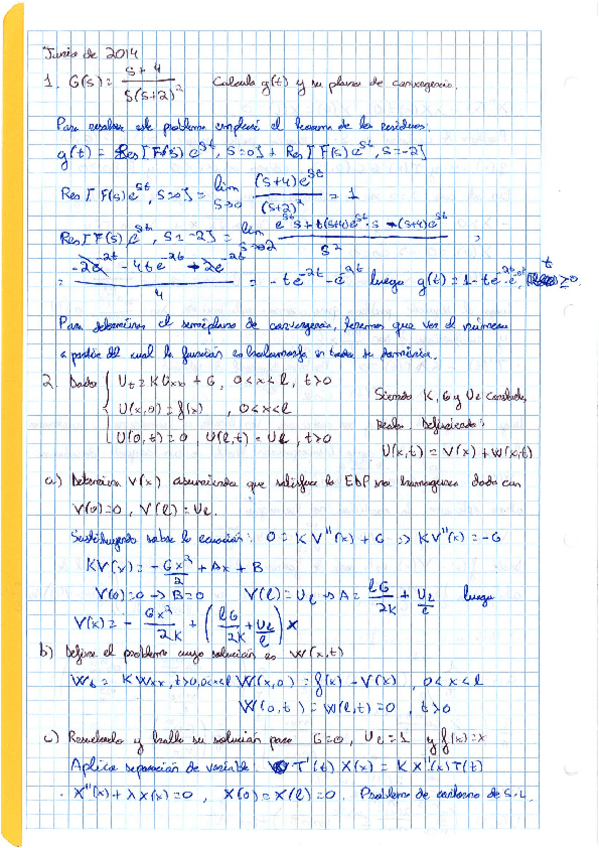 Junio de 2014
1. G(s) = (s+4)/(s(s+2)²) Calcula g(t) y su plano de convergencia.
Para resolver este problema emplearé el teorema de los residuos.
g(t) = Res[F(s)e^{st}, s=0] + Res[F(s)e^{st}, s=-2]
Res[F(s)e^{st}, s=0] = lim_{s→0} (s+4)e^{st}/(s+2)² = 1
Res[F(s)e^{st}, s=-2] = lim (e^{st}s + t(s+4)e^{st}·s - (s+4)e^{st})/s² =
= (-2e^{-2t} - 4te^{-2t} - 2e^{-2t})/4 = -te^{-2t} - e^{-2t} luego g(t) = 1-te^{-2t}-e^{-2t}, t≥0
Para determinar el semiplano de convergencia, tenemos que ver el número
a partir del cual la función es holomorfa en todo su dominio.
2. Dado { U_t = KU_xx + G, 0<x<l, t>0
U(x,0) = f(x), 0<x<l
U(0,t) = 0, U(l,t) = U_l, t>0
Siendo K, G y U_l constantes
reales. Definiendo:
U(x,t) = V(x) + W(x,t)
a) Determina V(x) asumiendo que satisface la EDP no homogénea dada con
V(0)=0, V(l)=U_l.
Sustituyendo sobre la ecuación: 0 = KV''(x) + G => KV''(x) = -G
KV(x) = -Gx²/2 + Ax + B
V(0)=0 → B=0 V(l)=U_l → A = lG/2K + U_l/l luego
V(x) = -Gx²/2K + (lG/2K + U_l/l)x
b) Define el problema cuya solución es W(x,t)
W_t = KW_xx, t>0, 0<x<l W(x,0) = f(x) - V(x), 0<x<l
W(0,t) = W(l,t) = 0, t>0
c) Resuelvelo y halla su solución para G=0, U_l=1 y f(x)=x
Aplico separación de variable: T'(t) X(x) = KX''(x)T(t)
. X''(x)+λX(x)=0, X(0)=X(l)=0. Problema de contorno de S-L.